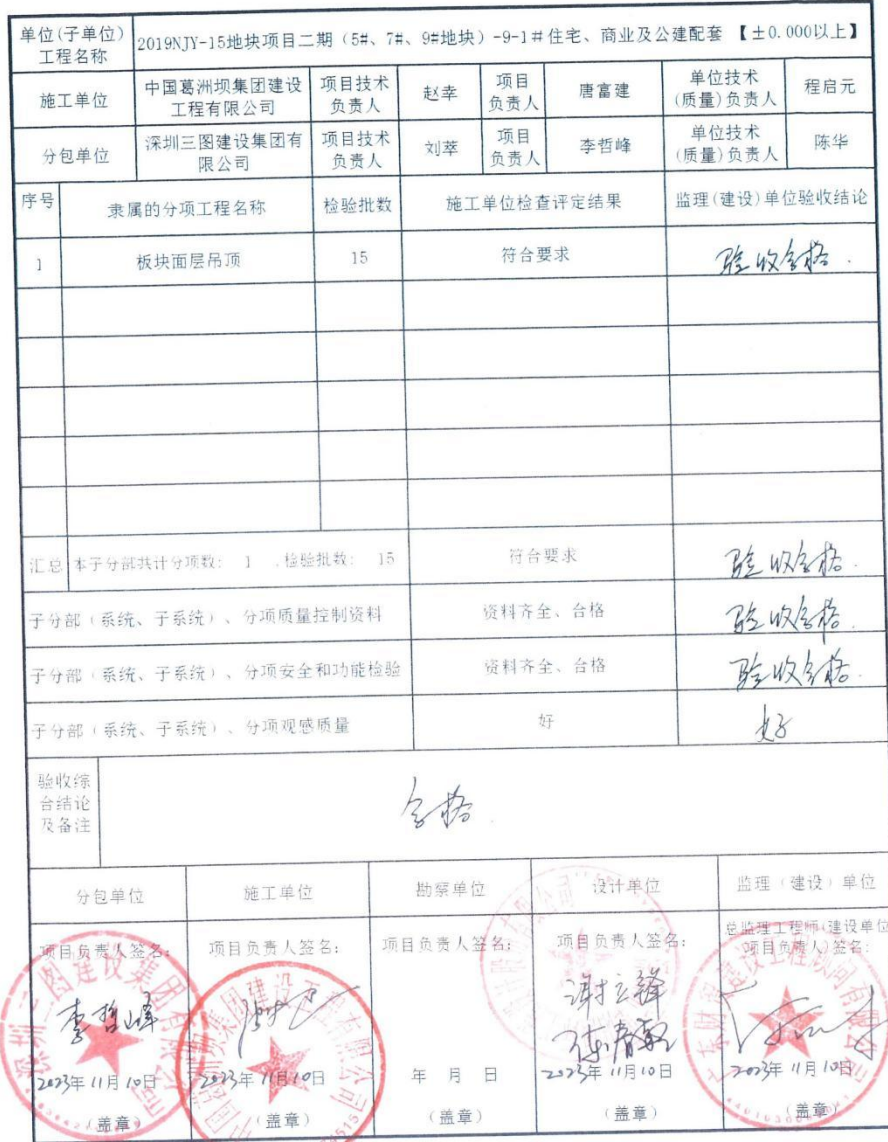 单位(子单位)
工程名称
2019NJY-15地块项目二期（5#、7#、9#地块）-9-1#住宅、商业及公建配套 【±0.000以上】
施工单位
中国葛洲坝集团建设
工程有限公司
项目技术
负责人
赵幸
项目
负责人
唐富建
单位技术
(质量)负责人
程启元
分包单位
深圳三图建设集团有
限公司
项目技术
负责人
刘莘
项目
负责人
李哲峰
单位技术
(质量)负责人
陈华
序号
隶属的分项工程名称
检验批数
施工单位检查评定结果
监理(建设)单位验收结论
1
板块面层吊顶
15
符合要求
验收合格.
汇总
本子分部共计分项数: 1 ,检验批数: 15
符合要求
验收合格.
子分部（系统、子系统）、分项质量控制资料
资料齐全、合格
验收合格.
子分部（系统、子系统）、分项安全和功能检验
资料齐全、合格
验收合格.
子分部（系统、子系统）、分项观感质量
好
好
验收综
合结论
及备注
合格.
分包单位
施工单位
勘察单位
设计单位
监理（建设）单位
项目负责人签名:
项目负责人签名:
项目负责人签名:
项目负责人签名:
总监理工程师(建设单位
项目负责人)签名:
李哲峰
2023年11月10日
2023年11月10日
年 月 日
2023年11月10日
2023年11月10日
（盖章）
（盖章）
（盖章）
（盖章）
（盖章）
深圳三图建设集团有限公司